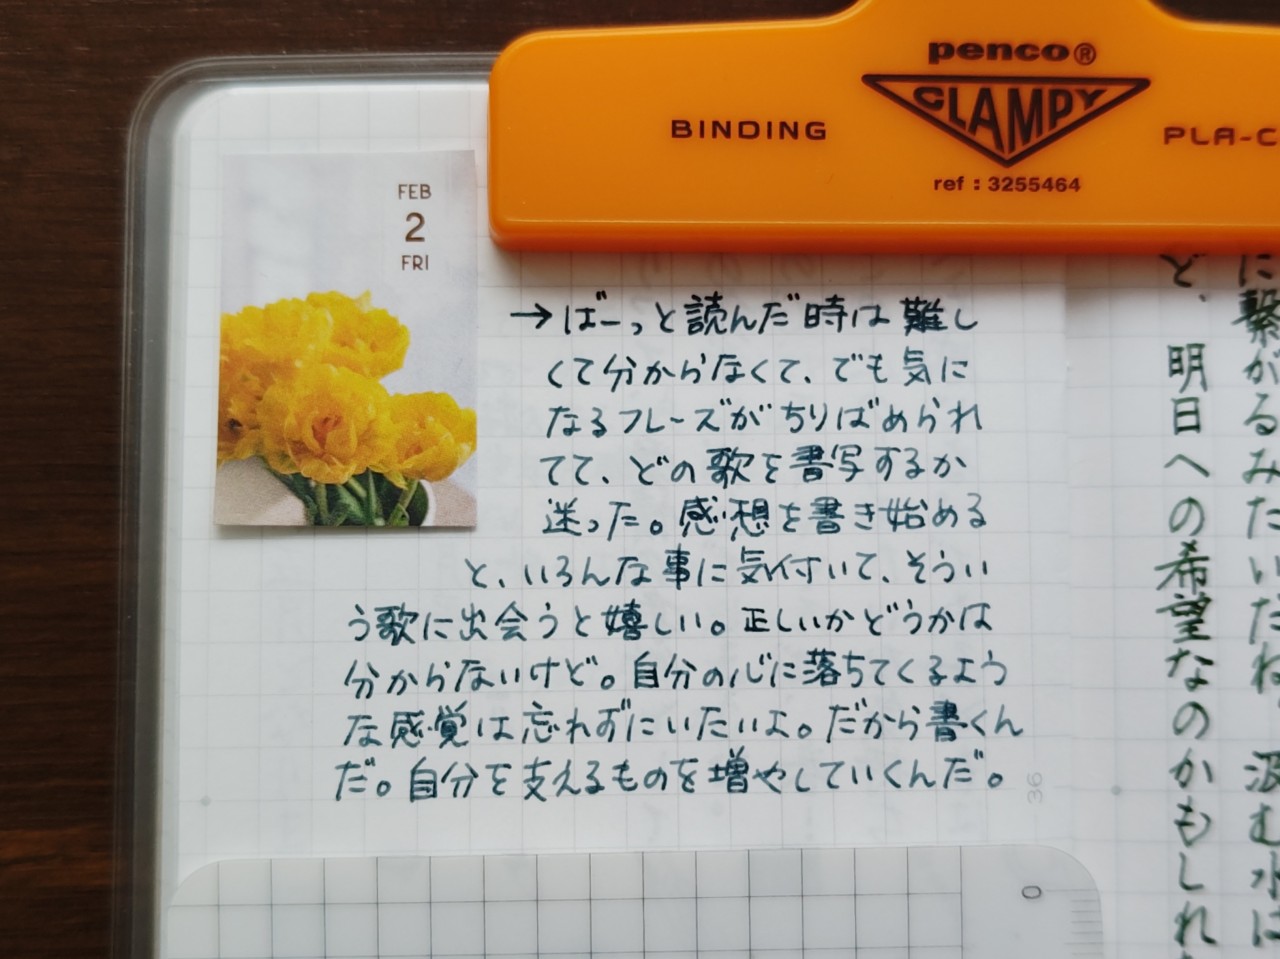 penco®
CLAMPY
BINDING
PLA-C
ref : 3255464
FEB
2
FRI
→ばーっと読んだ時は難し
くて分からなくて、でも気に
なるフレーズがちりばめられ
てて、どの歌を書写するか
迷った。感想を書き始める
と、いろんな事に気付いて、そうい
う歌に出会うと嬉しい。正しいかどうかは
分からないけど。自分の心に落ちてくるよう
な感覚は忘れずにいたいよ。だから書くん
だ。自分を支えるものを増やしていくんだ。
36
0
に繋がるみたいだね。汲む水に
ど、明日への希望なのかもしれ